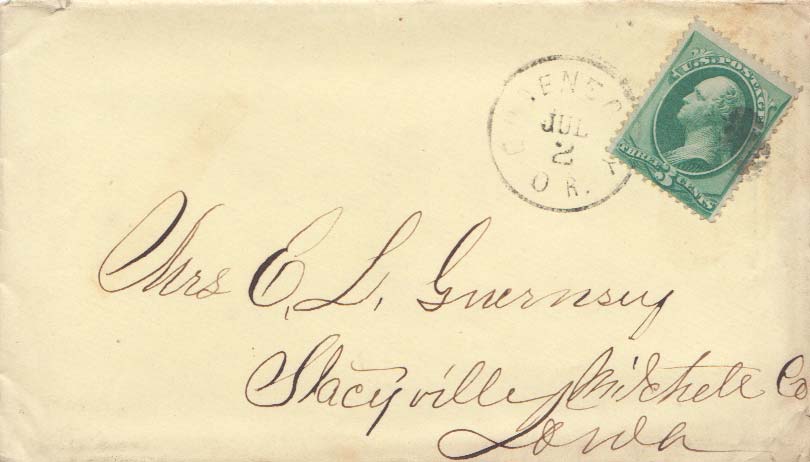 U.S. POSTAGE
THREE 3 CENTS
JUL
2
OR.
Mrs E. L. Guernsey
Stacyville Mitchell Co
Iowa